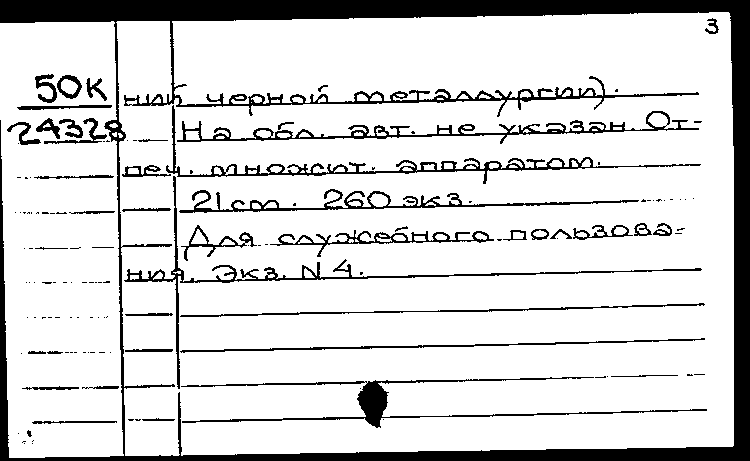 3
50К
24328
ний черной металлургии).
На обл. авт. не указан. От-
печ. множит. аппаратом.
21 cm. 260 экз.
Для служебного пользова-
ния. Экз. N 4.